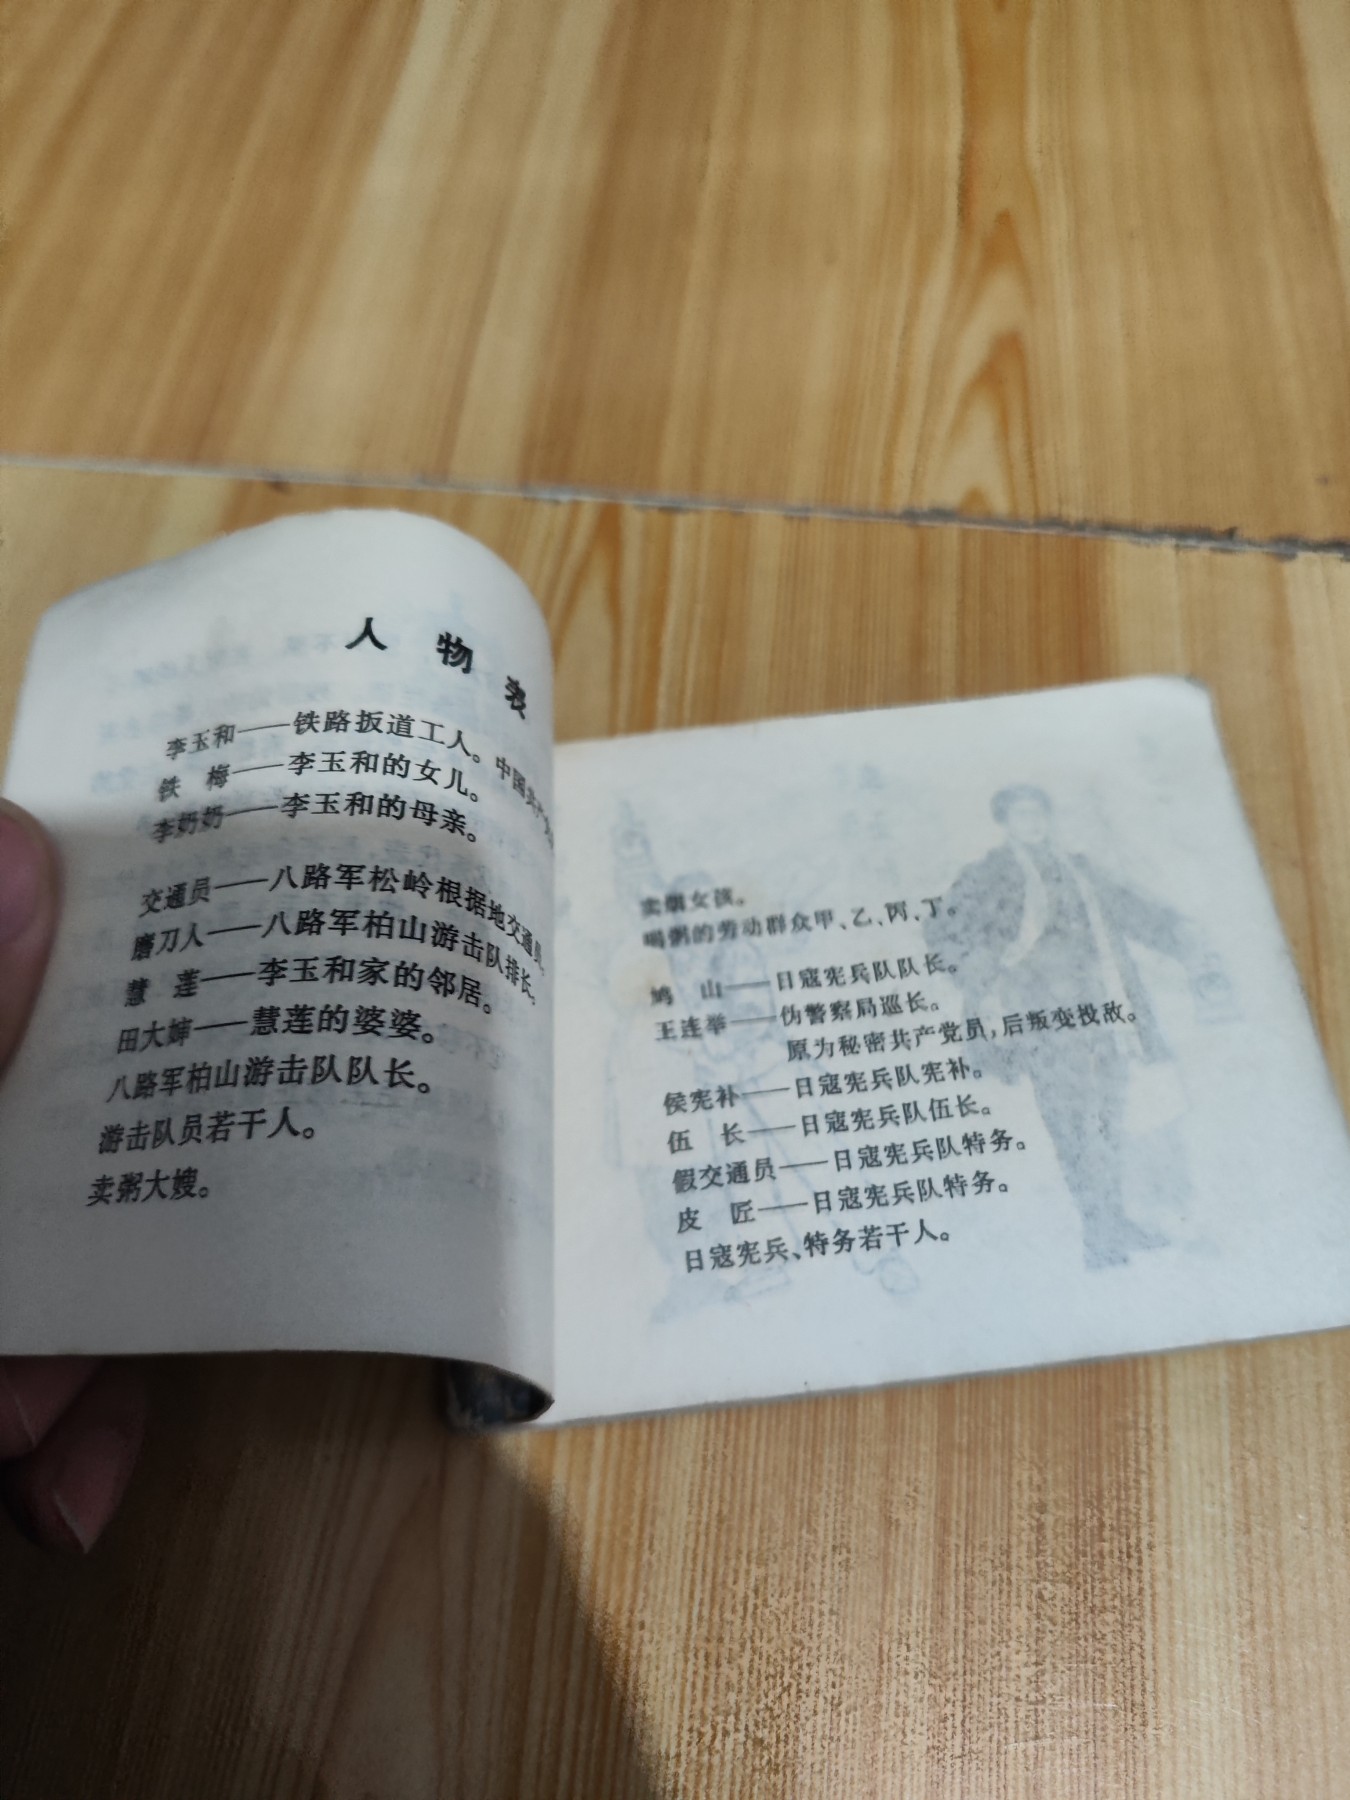 人物表
李玉和——铁路扳道工人。中国共产党
铁 梅——李玉和的女儿。
李奶奶——李玉和的母亲。
交通员——八路军松岭根据地交通员。
磨刀人——八路军柏山游击队排长。
慧 莲——李玉和家的邻居。
田大婶——慧莲的婆婆。
八路军柏山游击队队长。
游击队员若干人。
卖粥大嫂。
卖烟女孩。
喝粥的劳动群众甲、乙、丙、丁。
鸠 山——日寇宪兵队队长。
王连举——伪警察局巡长。
原为秘密共产党员,后叛变投敌。
侯宪补——日寇宪兵队宪补。
伍 长——日寇宪兵队伍长。
假交通员——日寇宪兵队特务。
皮 匠——日寇宪兵队特务。
日寇宪兵、特务若干人。